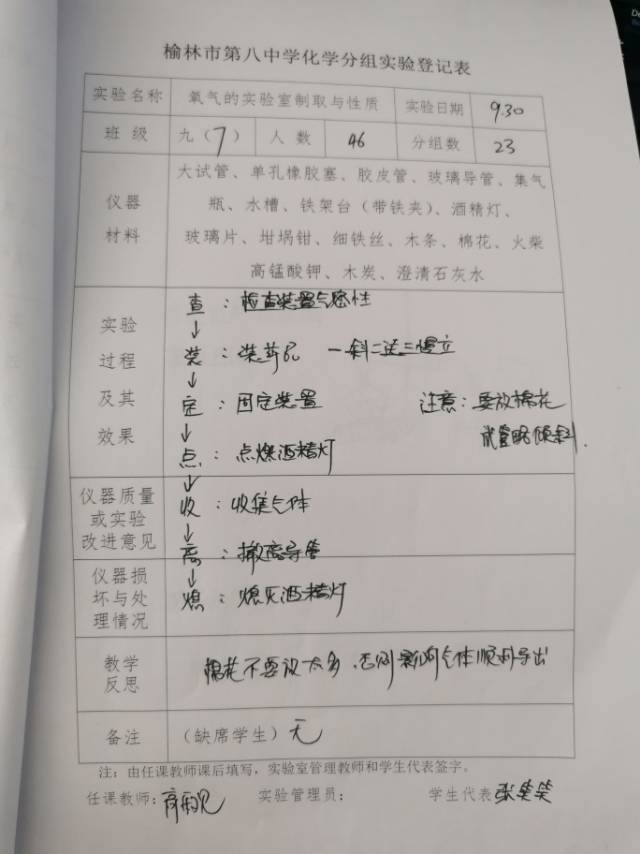 榆林市第八中学化学分组实验登记表
实验名称 氧气的实验室制取与性质 实验日期 9.30
班级 九（7） 人数 46 分组数 23
仪器材料
大试管、单孔橡胶塞、胶皮管、玻璃导管、集气
瓶、水槽、铁架台（带铁夹）、酒精灯、
玻璃片、坩埚钳、细铁丝、木条、棉花、火柴
高锰酸钾、木炭、澄清石灰水
实验
过程
及其
效果
查：检查装置气密性
↓
装：装药品 一斜二送三慢立
↓
定：固定装置 注意：要放棉花
↓ 试管略倾斜.
点：点燃酒精灯
↓
仪器质量
或实验
改进意见
收：收集气体
↓
离：撤离导管
↓
仪器损
坏与处
理情况
熄：熄灭酒精灯
教学
反思
棉花不要放太多，否则影响气体顺利导出
备注 （缺席学生）无
注：由任课教师课后填写，实验室管理教师和学生代表签字。
任课教师： 实验管理员： 学生代表